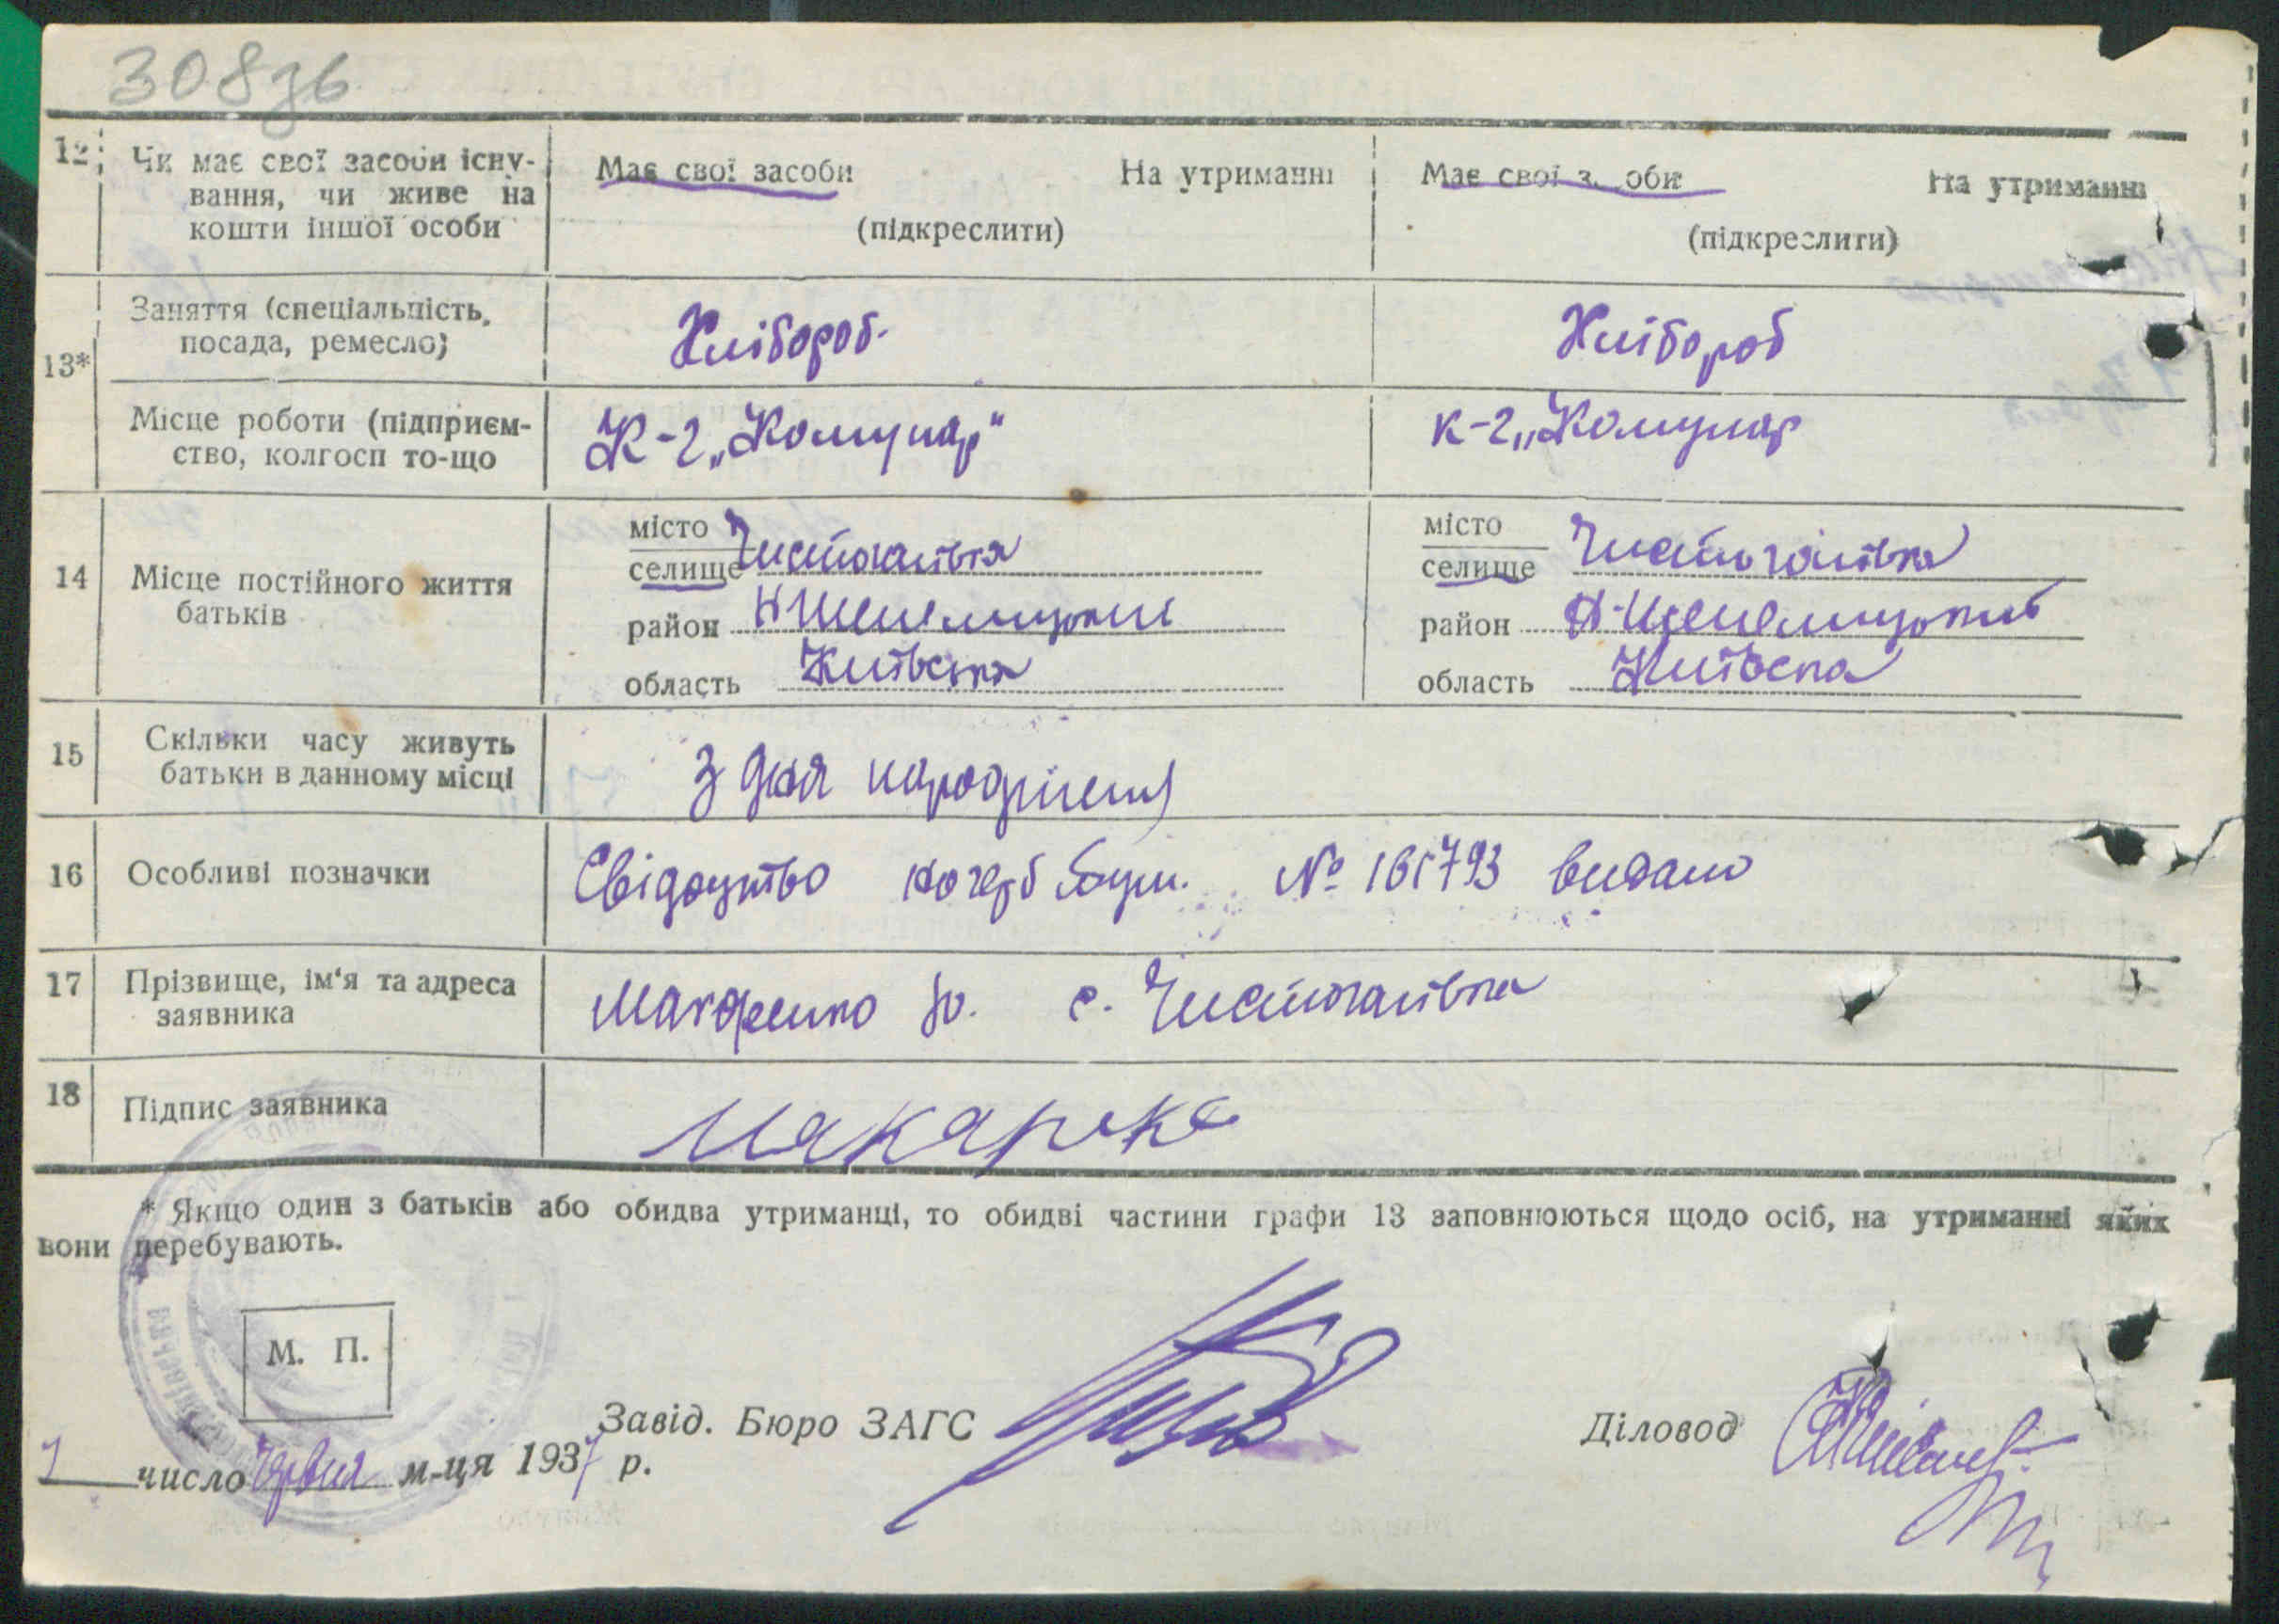 308зв
12 Чи має свої засоби існу-
вання, чи живе на
кошти іншої особи
Має свої засоби На утриманні
(підкреслити)
Має свої з оби На утриманні
(підкреслити)
13*
Заняття (спеціальність,
посада, ремесло)
Хлібороб.
Хлібороб
Місце роботи (підприєм-
ство, колгосп то-що
К-г „Комунар"
к-г „Комунар
14 Місце постійного життя
батьків
місто
селище Чистогалівка
район Н Шепелицький
область Київська
місто
селище Чистогалівка
район Н-Шепелицький
область Київська
15 Скільки часу живуть
батьки в данному місці
З дня народження
16 Особливі позначки
Свідоцтво № 161793 видано
17 Прізвище, ім'я та адреса
заявника
Макаренко Ю. с. Чистогалівка
18 Підпис заявника
* Якщо один з батьків або обидва утриманці, то обидві частини графи 13 заповнюються щодо осіб, на утриманні яких
вони перебувають.
М. П.
Завід. Бюро ЗАГС
Діловод
число червня м-ця 1937 р.